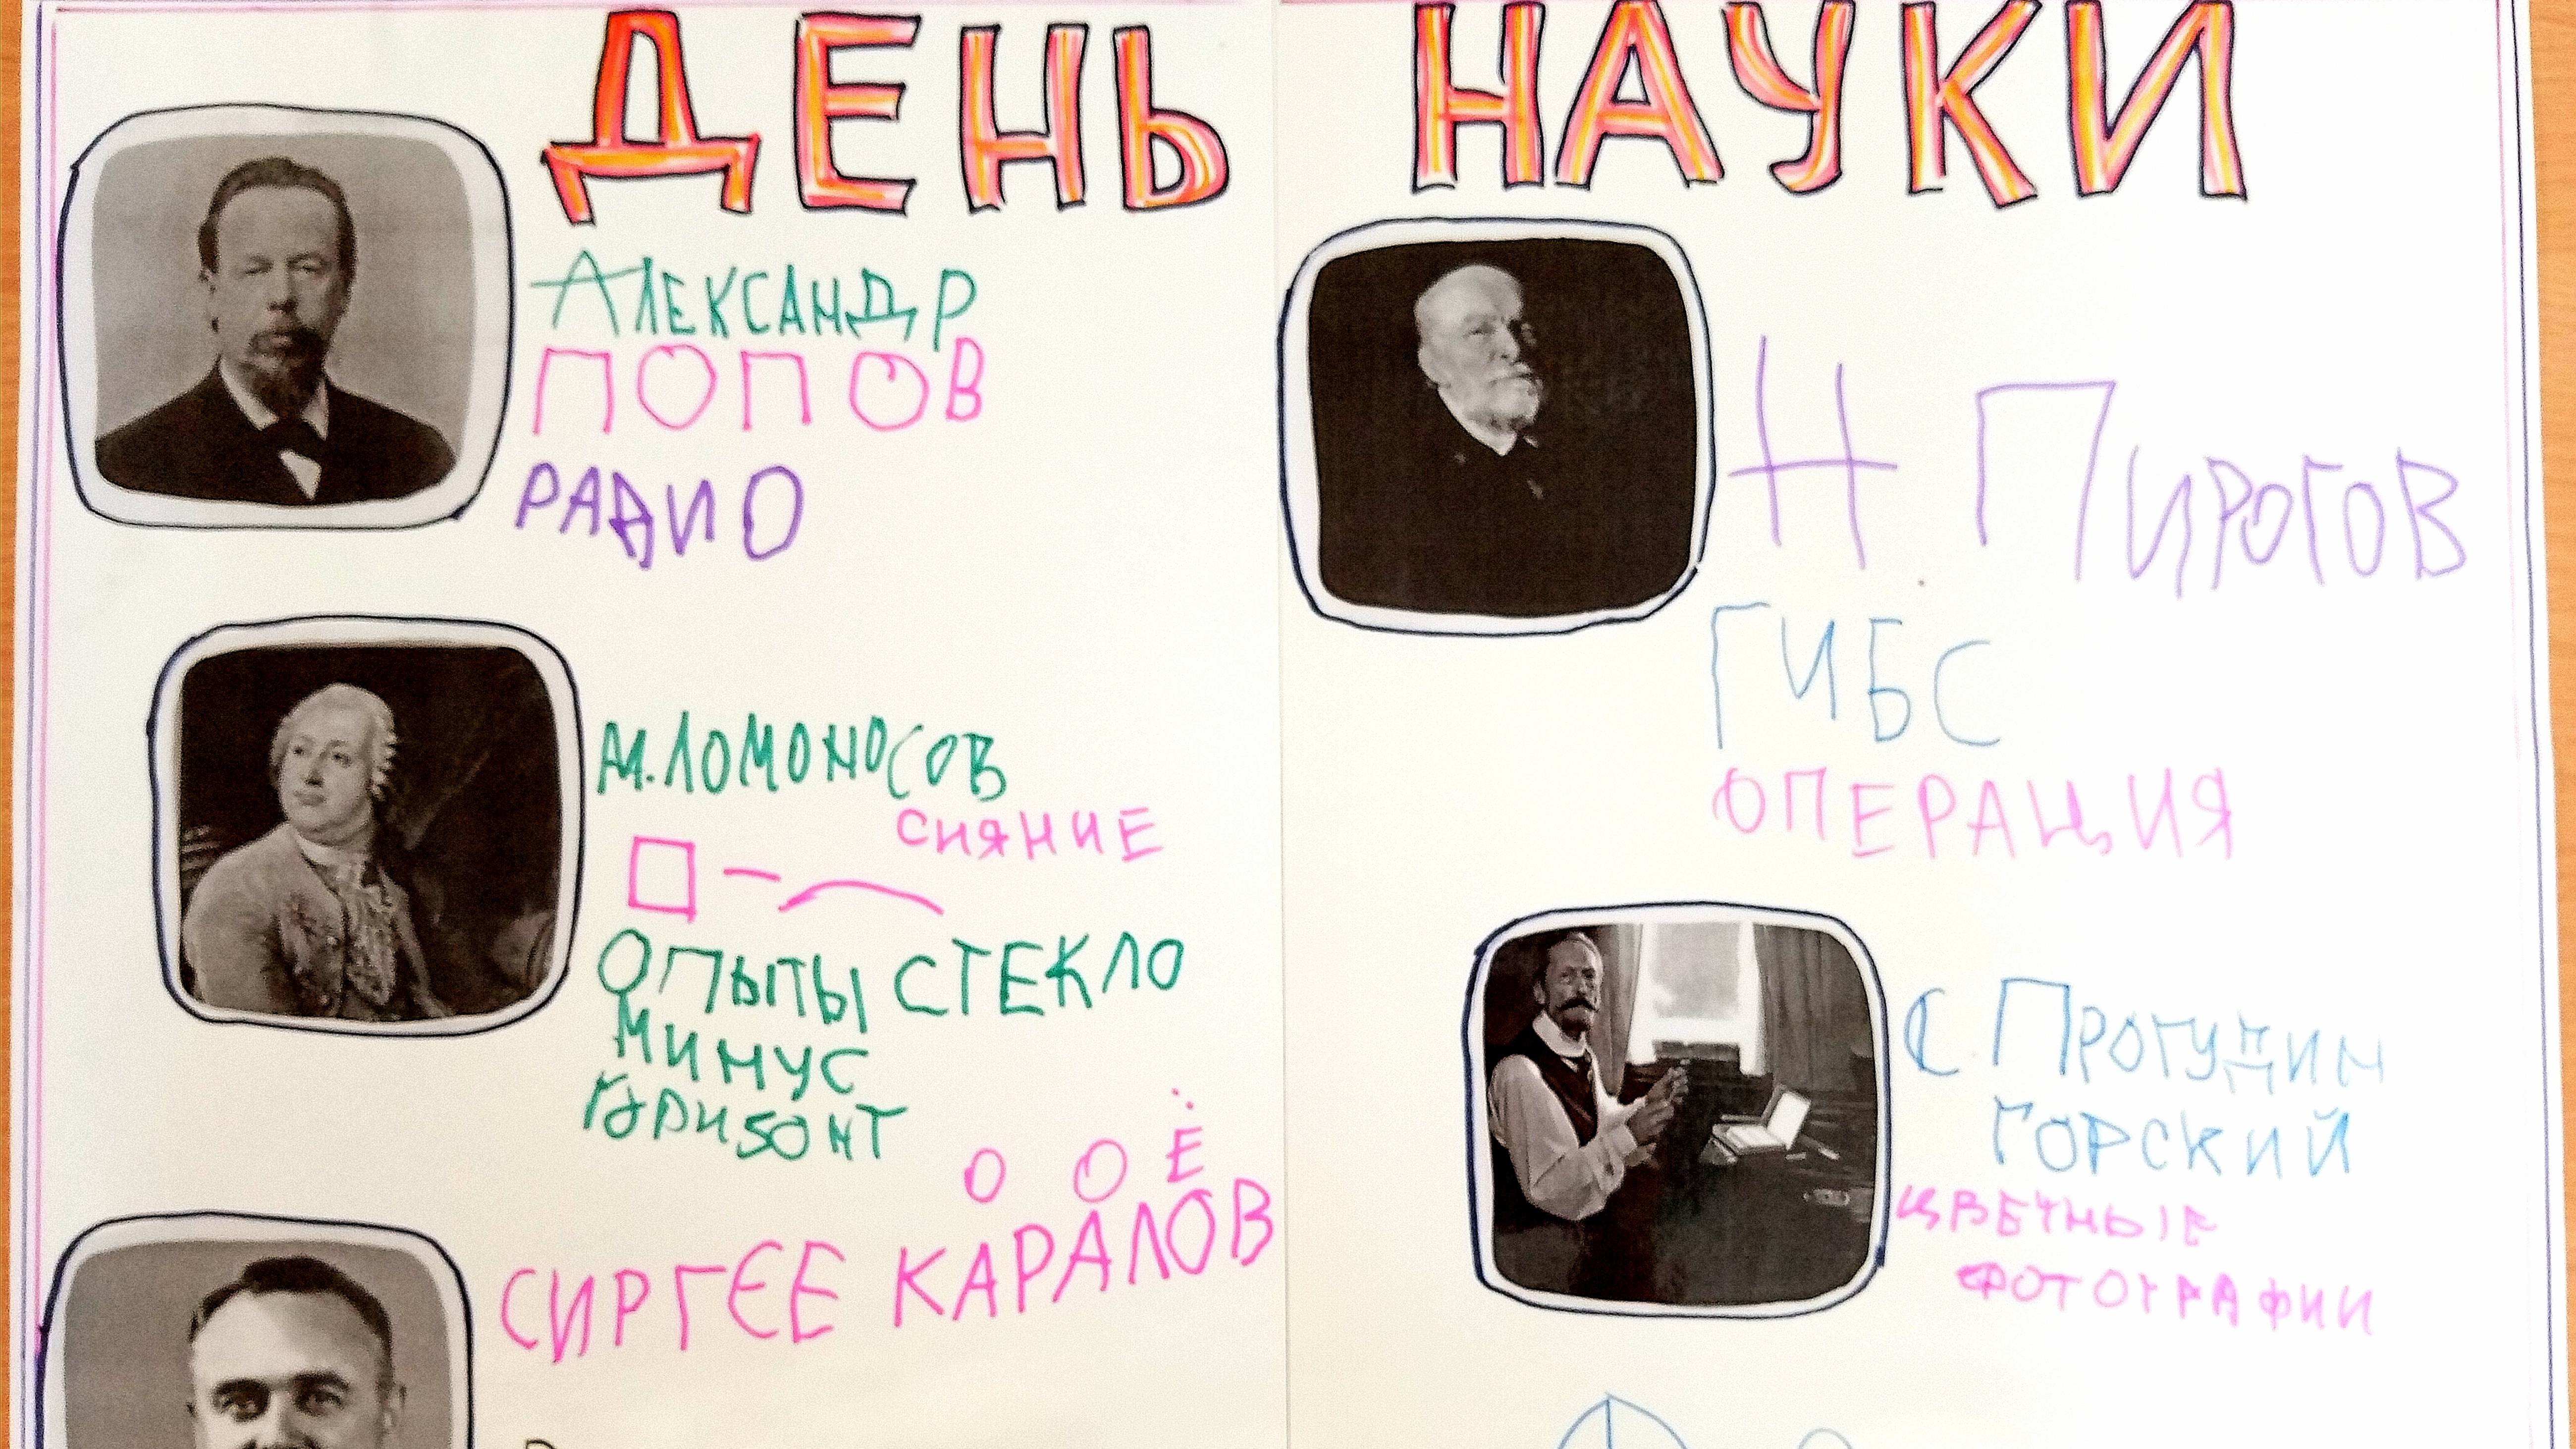 ДЕНЬ НАУКИ
АЛЕКСАНДР
ПОПОВ
РАДИО
М. ЛОМОНОСОВ
СИЯНИЕ
ОПЫТЫ СТЕКЛО
МИНУС
ГАРИЗОНТ
О О Ё
СИРГЕЕ КАРАЛОВ
Н ПИРОГОВ
ГИБС
ОПЕРАЦИЯ
С. ПРОГУДИН
ГОРСКИЙ
ЦВЕЧНЫЕ
ФОТОГРАФИИ